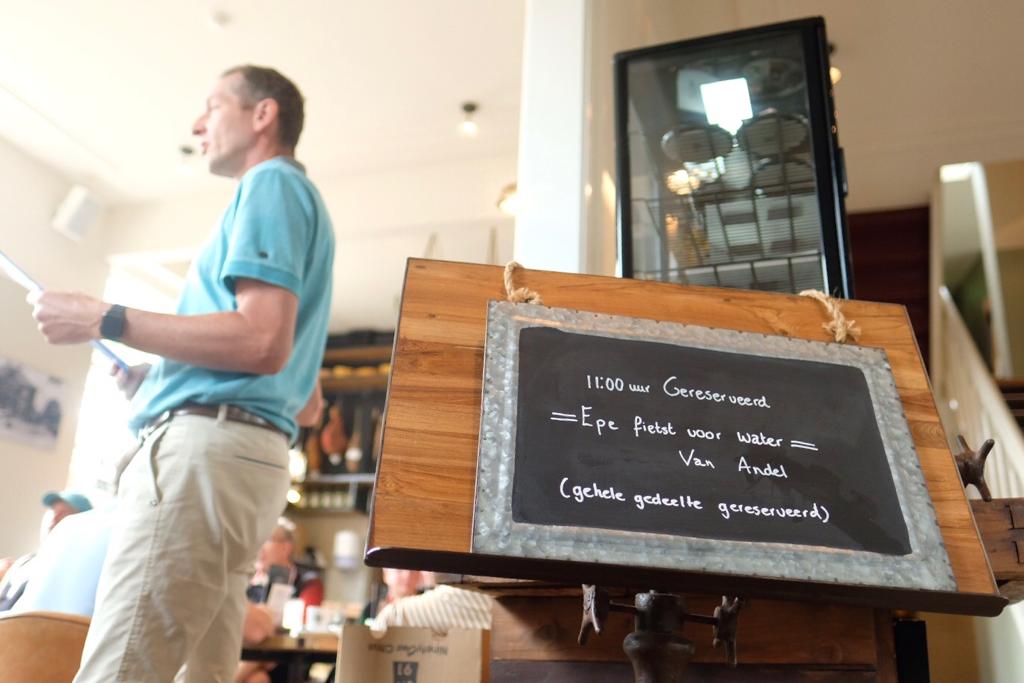 11:00 uur Gereserveerd
=Epe fietst voor water=
Van Andel
(gehele gedeelte gereserveerd)
NinetyOne Cibus
91